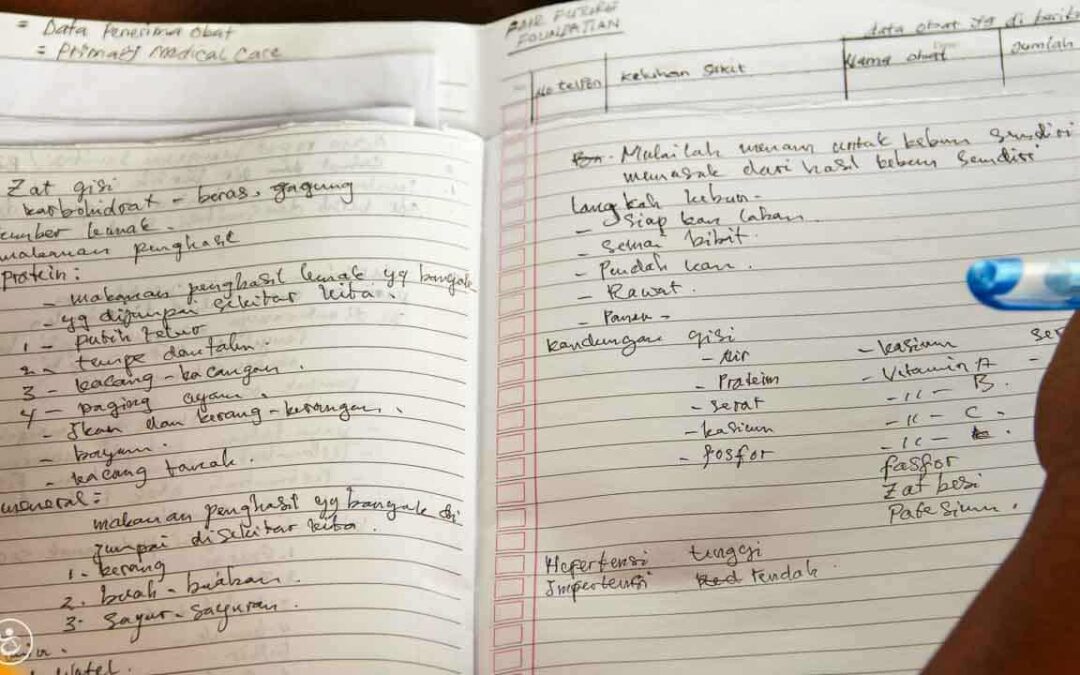 = Data Penerima obat
= Primary Medical Care
Zat gisi
karbohidrat - beras, gagung
sumber lemak -
makanan penghasil
protein :
- makanan penghasil lemak yg banyak
- yg dijumpai sekitar kita.
1 - putih telur
2 - tempe dan tahu
3 - kacang-kacangan.
4 - daging ayam.
- Ikan dan kerang-kerangan.
- bayam.
- kacang tanah.
meneral =
makanan penghasil yg banyak di
jumpai disekitar kita.
1. kerang
2. buah-buahan.
3. sayur-sayuran.
FAIR FUTURE
FOUNDATION
data obat yg di berika
No telpon
keluhan sakit
Nama obat
Jumlah
Mulailah menam untuk kebun sendiri
memasak dari hasil kebun sendiri
langkah kebun -
- Siap kan lahan.
- Semai bibit.
- Pindah kan.
- Rawat.
- Panen -
kandungan gisi
- Air
- Protein
- serat
- kasium
- fosfor
- kasium
- Vitamin A
- 11 - B.
- 11 - C.
- 11 -
fosfor
Zat besi
Patesium.
ser
Hepertensi tinggi
Impertensi rendah.